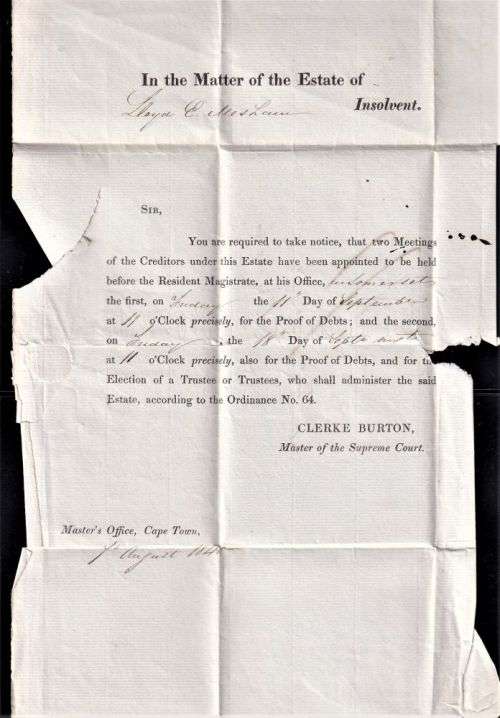 In the Matter of the Estate of
Lloyd E. Insolvent.
SIR,
You are required to take notice, that two Meetings
of the Creditors under this Estate have been appointed to be held
before the Resident Magistrate, at his Office, Somerset
the first, on Friday the 11th Day of September
at 11 o'Clock precisely, for the Proof of Debts; and the second,
on Friday, the 18th Day of Septr
at 11 o'Clock precisely, also for the Proof of Debts, and for the
Election of a Trustee or Trustees, who shall administer the said
Estate, according to the Ordinance No. 64.
CLERKE BURTON,
Master of the Supreme Court.
Master's Office, Cape Town,
August